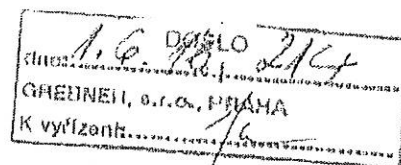 DOŠLO
dne: 1. 6. 18 č.j. 214
GREBNER, s.r.o., PRAHA
K vyřízení: